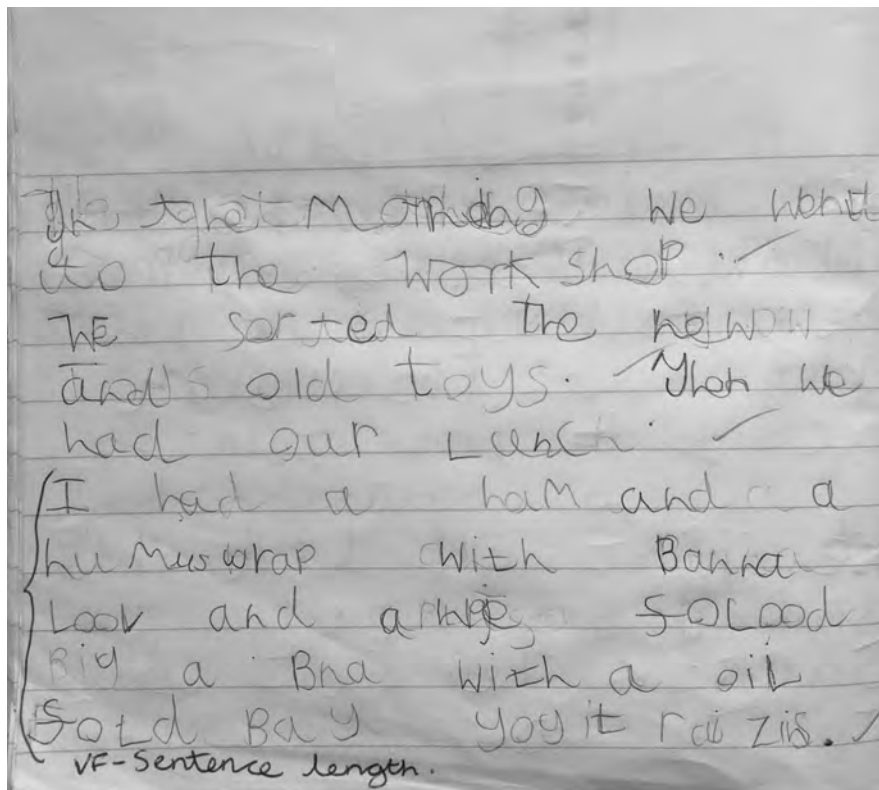 that Monday we went
to the work shop.
WE sorted the new
and old toys. Then we
had our Lunch.
I had a ham and a
humus wrap with Banna
Loov and a Solood
Big a Bna with a oil
Sold Bay yogit raizis.
VF-Sentence length.